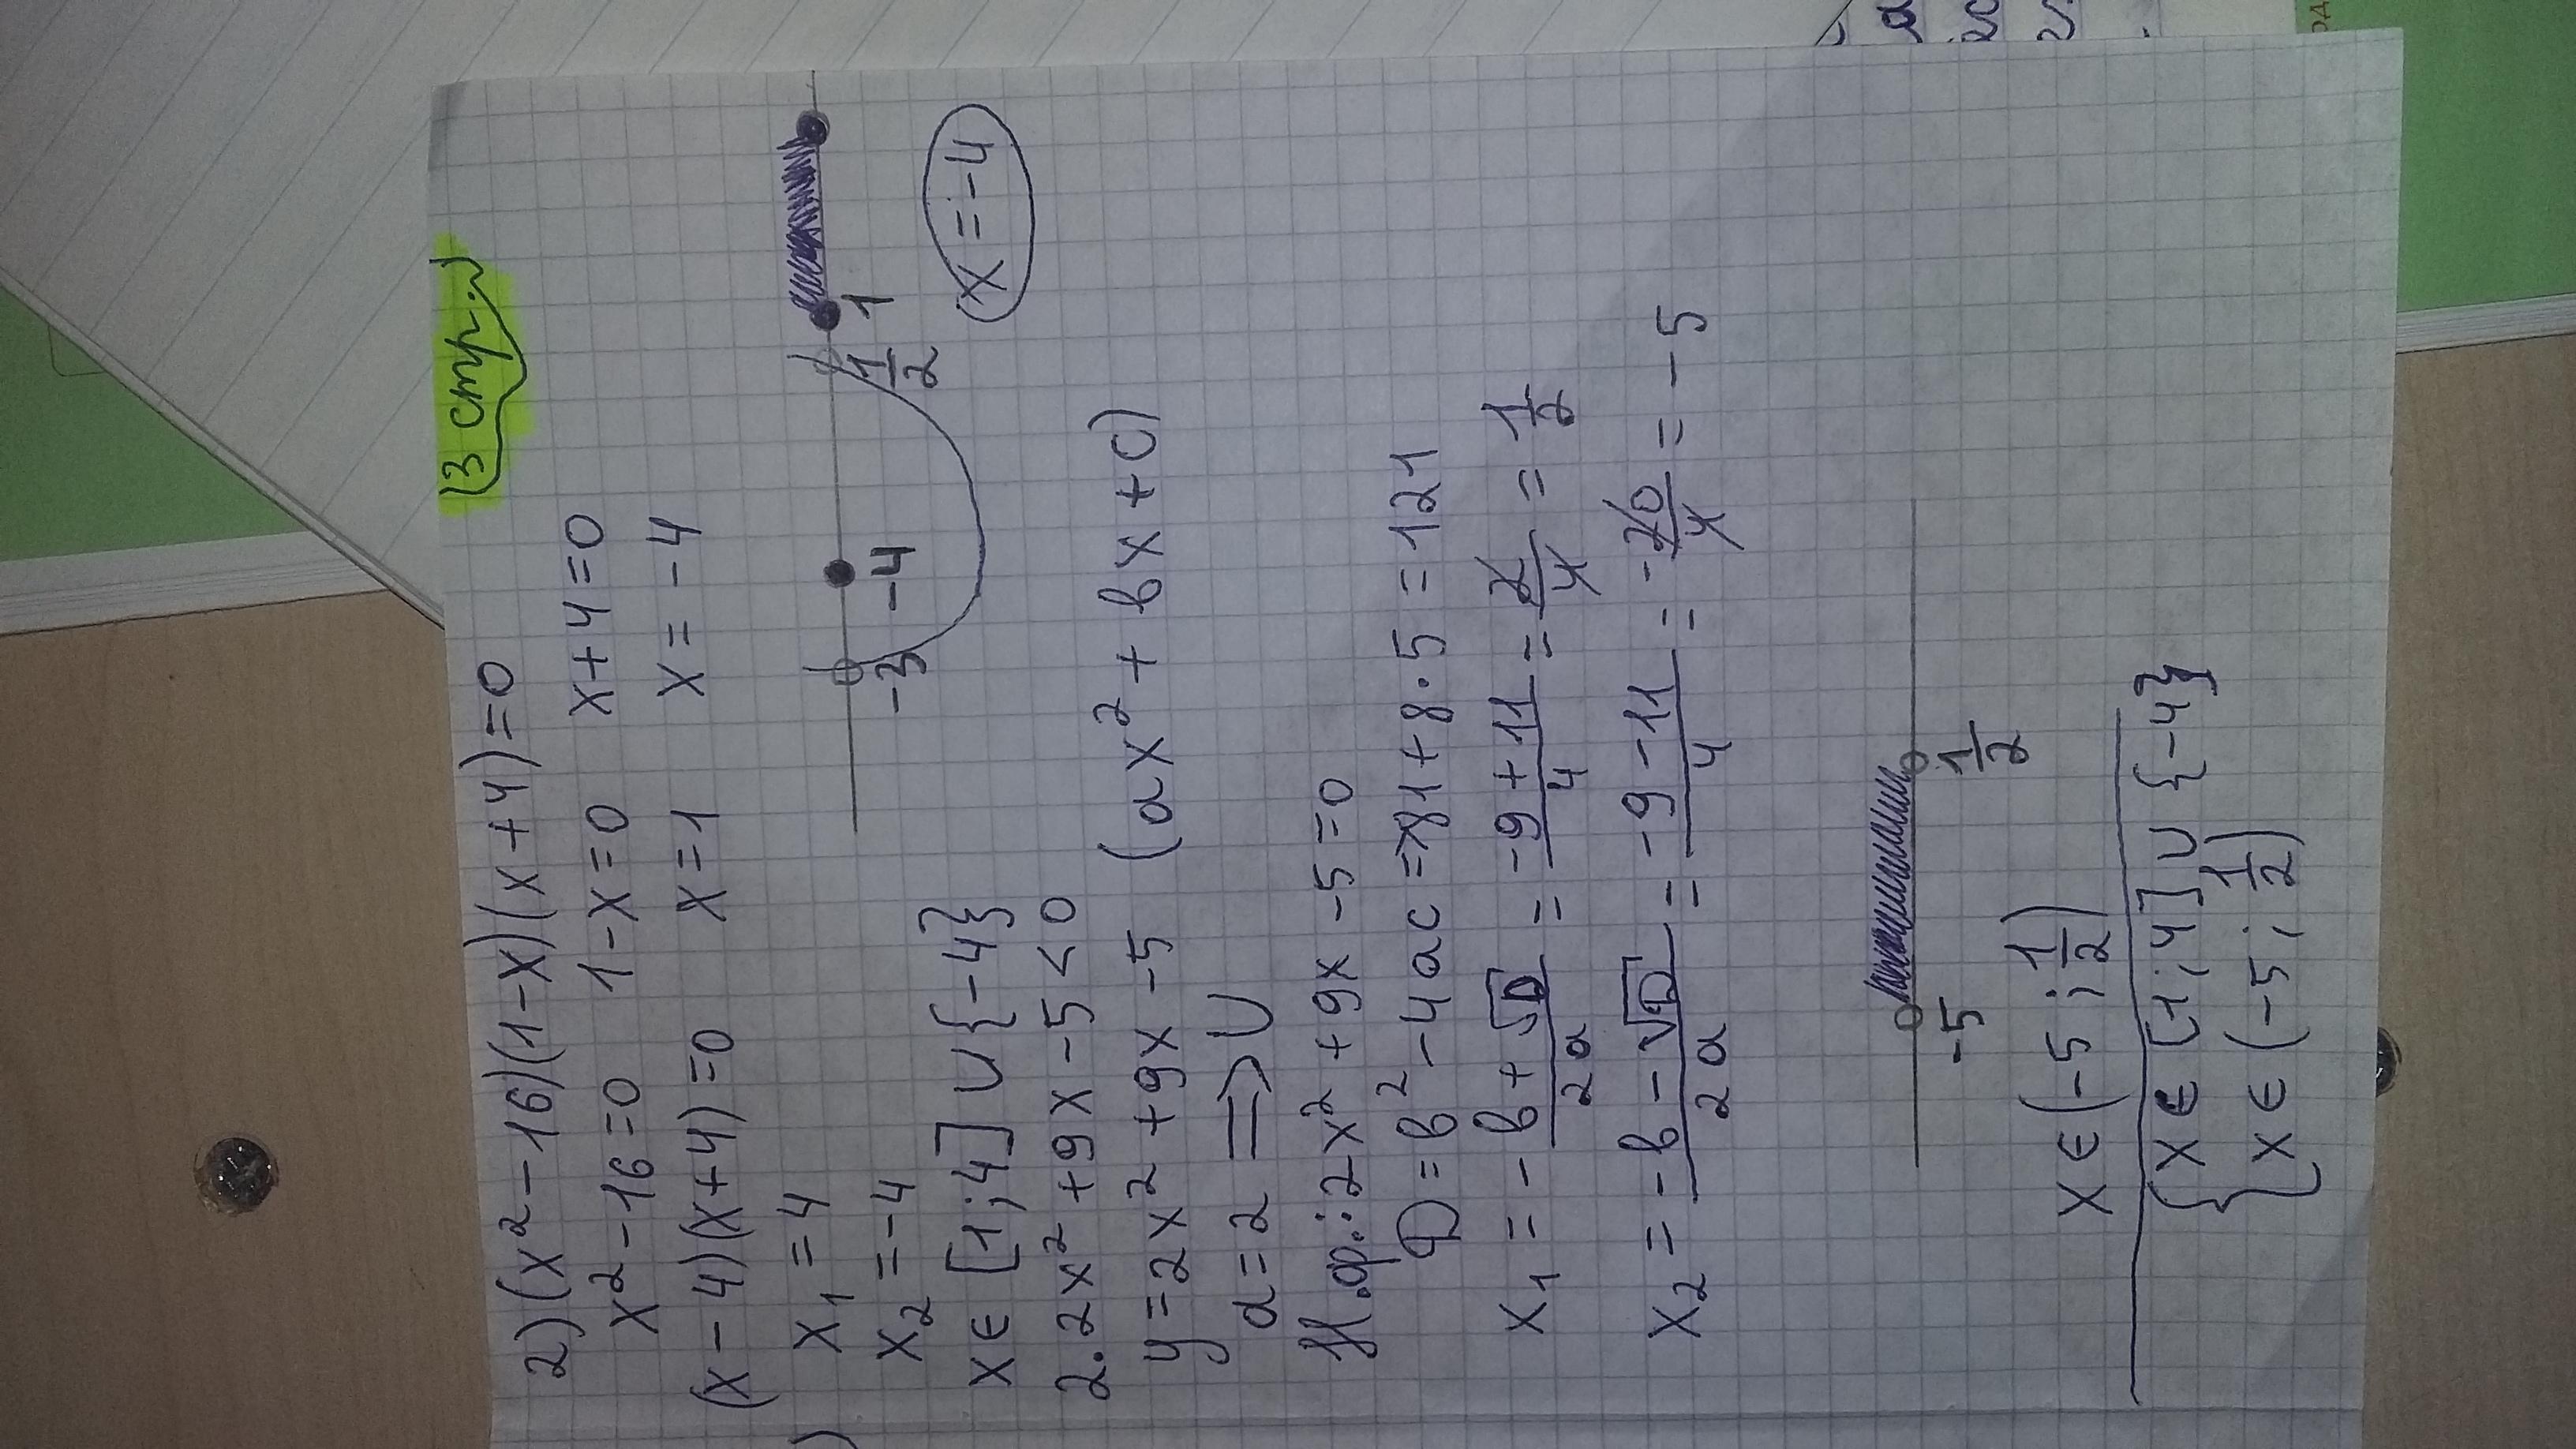 (3 стр.)
2)(x²-16)(1-x)(x+4)=0
x²-16=0 1-x=0 x+4=0
(x-4)(x+4)=0 x=1 x=-4
x₁=4
x₂=-4
-3 -4 1/2 1
x∈[1;4]∪{-4} (x=-4)
2. 2x²+9x-5<0
y=2x²+9x-5 (ax²+bx+c)
a=2 ⇒ ∪
Н.ф.: 2x²+9x-5=0
D=b²-4ac=81+8·5=121
x₁=(-b+√D)/2a=(-9+11)/4=2/4=1/2
x₂=(-b-√D)/2a=(-9-11)/4=-20/4=-5
-5 1/2
x∈(-5;1/2)
{x∈[1;4]∪{-4}
{x∈(-5;1/2)